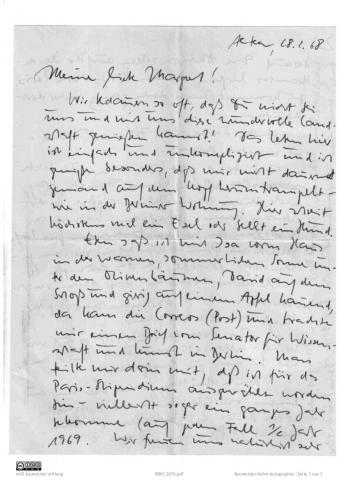 Altea, 28.2.68
Meine liebe Margot!
Wir bedauern so oft, daß Du nicht bei
uns und mit uns diese wundervolle Land-
schaft genießen kannst! Das Leben hier
ist einfach und unkompliziert und ich
genieße besonders, daß mir nicht dauernd
jemand auf dem Kopf herumtrampelt –
wie in der Berliner Wohnung. Hier schreit
höchstens mal ein Esel oder bellt ein Hund.
Eben saß ich mit Isa vorm Haus
in der warmen, sommerlichen Sonne un-
ter den Olivenbäumen, David auf dem
Schoß und gierig auf einem Apfel kauend,
da kam die Correos (Post) und brachte
mir einen Brief vom Senator für Wissen-
schaft und Kunst in Berlin. Man
teilt mir darin mit, daß ich für das
Paris-Stipendium ausgewählt worden
bin – vielleicht sogar ein ganzes Jahr
bekomme (auf jeden Fall 1/2 Jahr
1969. Wir freuen uns natürlich sehr
willi baumeister stiftung
Baumeister Rehm Autographen | Seite 1 von 2